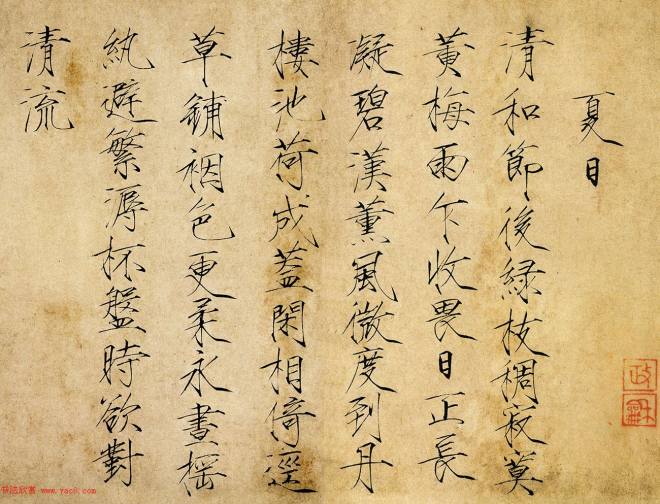 夏日
清和節後緑枝稠寂寞
黄梅雨乍收畏日正長
凝碧漢薰風微度到丹
樓池荷成蓋閑相倚逕
草鋪裀色更柔永晝摇
紈避繁溽杯盤時欲對
清流
书法欣赏 www.yac8.com